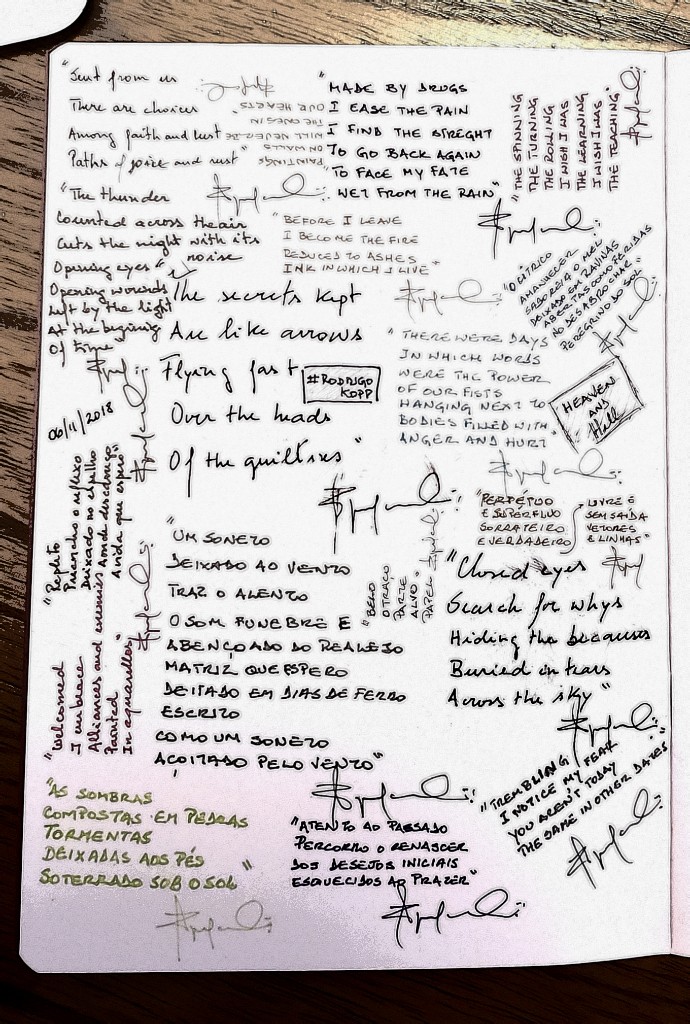 "Sent from us
There are choices
Among faith and lust
Paths of voice and rust
PAINTINGS
ON WALLS
WILL NEVER BE
THE CAGES IN
OUR HEARTS
"MADE BY DRUGS
I EASE THE PAIN
I FIND THE STREGHT
TO GO BACK AGAIN
TO FACE MY FATE
WET FROM THE RAIN"
"THE SPINNING
THE TURNING
THE ROLLING
I WISH I WAS
THE LEARNING
I WISH I WAS
THE TEACHING"
"The thunder
Counted across the air
Cuts the night with its
noise
Opening eyes"
Opening wounds
Left by the light
At the begining
Of time
"BEFORE I LEAVE
I BECOME THE FIRE
REDUCED TO ASHES
INK IN WHICH I LIVE"
"O CÍTRICO
AMANHECER
SABOREIA O MEL
DEIXADO EM RAVINAS
ABERTAS COMO FERIDAS
NO DESABROCHAR
PEREGRINO DO SOL
"The secrets kept
Are like arrows
Flying fast
Over the heads
Of the guiltless"
#RODRIGO
KOPP
"THERE WERE DAYS
IN WHICH WORDS
WERE THE POWER
OF OUR FISTS
HANGING NEXT TO
BODIES FILLED WITH
ANGER AND HURT"
HEAVEN
AND
Hell
06/11/2018
"Repito
o reflexo
Deixado no espelho
Amo de descanso
A vida que espero"
"UM SONETO
DEIXADO AO VENTO
TRAZ O ALENTO
O SOM FUNEBRE E
ABENÇOADO DO REALEJO
MATRIZ QUE ESPERO
DEITADO EM DIAS DE FERRO
ESCRITO
COMO UM SONETO
AÇOITADO PELO VENTO"
"BELO
O TRAÇO
PARTE
ALVO
PAPEL"
"PERPÉTUO
E SUPERFLUO
SORRATEIRO
E VERDADEIRO
LIVRE E
SEM SAÍDA
VETORES
E LINHAS"
"Closed eyes
Search for whys
Hiding the becauses
Buried in tears
Across the sky"
"Welcomed
I embrace
Alliances and enemies
Painted
In aquarelles"
"AS SOMBRAS
COMPOSTAS EM PEDRAS
TORMENTAS
DEIXADAS AOS PÉS
SOTERRADO SOB O SOL"
"ATENTO AO PASSADO
PERCORRO O RENASCER
DOS DESEJOS INICIAIS
ESQUECIDOS AO PRAZER"
"TREMBLING
I NOTICE MY FEAR
YOU AREN'T TODAY
THE SAME IN OTHER DATES"